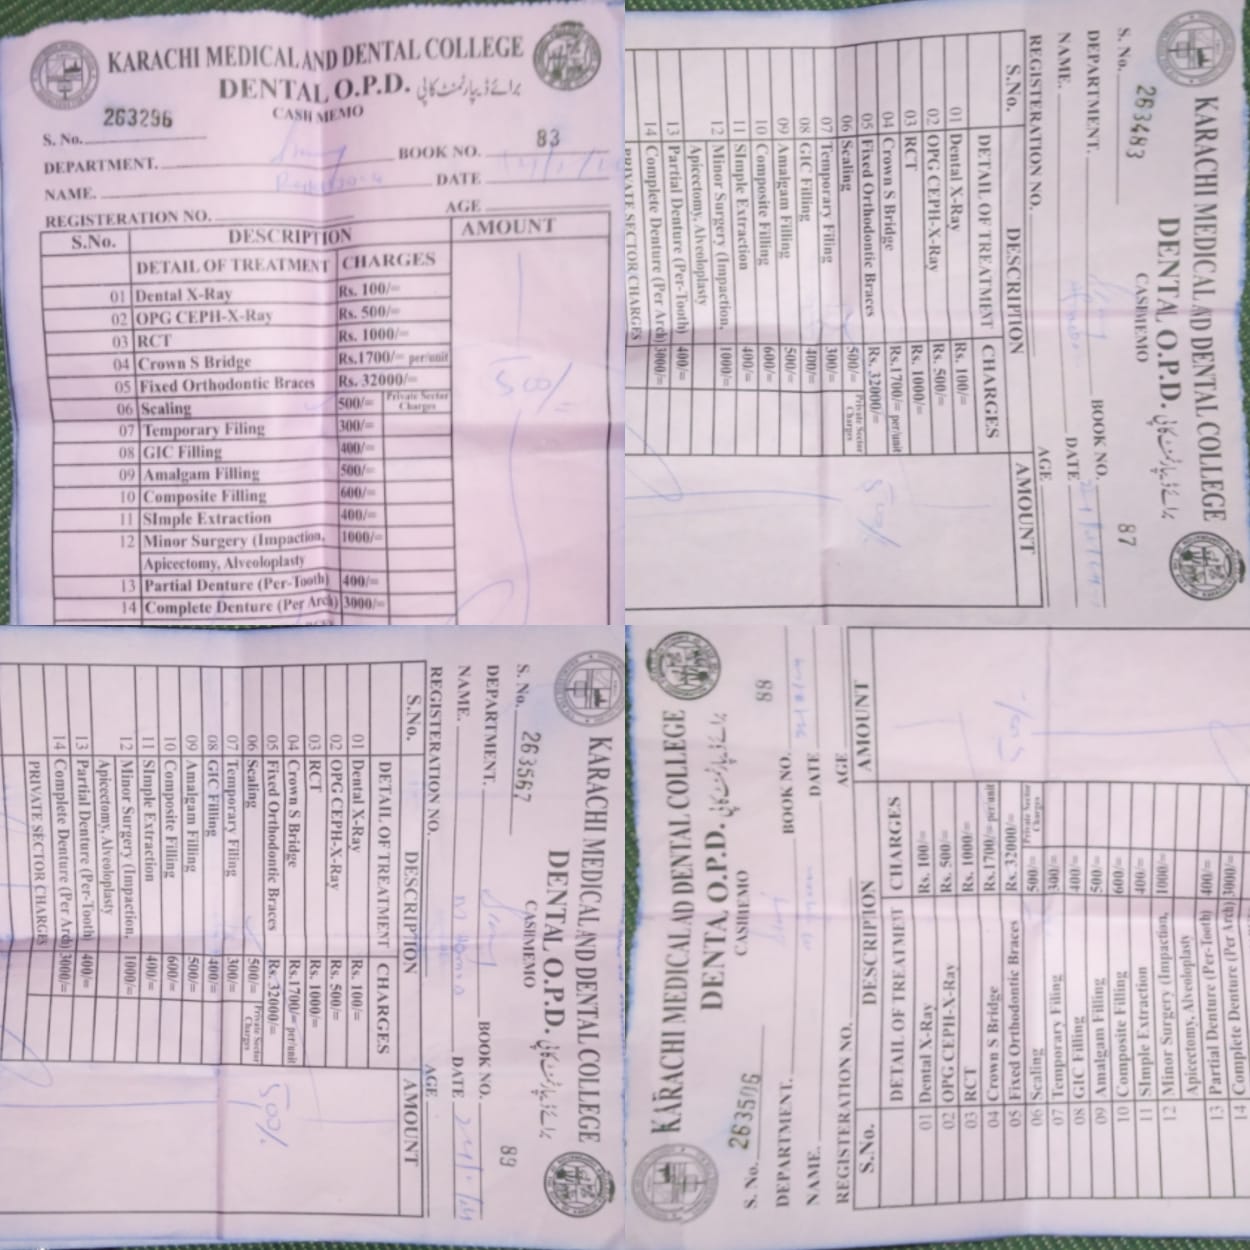 KARACHI MEDICAL AND DENTAL COLLEGE
DENTAL O.P.D. برائے ڈیپارٹمنٹ کاپی
CASH MEMO
S. No. 263296
BOOK NO. 83
DEPARTMENT.
NAME. DATE
REGISTERATION NO. AGE
S.No. DESCRIPTION AMOUNT
DETAIL OF TREATMENT CHARGES
01 Dental X-Ray Rs. 100/=
02 OPG CEPH-X-Ray Rs. 500/=
03 RCT Rs. 1000/=
04 Crown S Bridge Rs.1700/= per/unit
05 Fixed Orthodontic Braces Rs. 32000/=
06 Scaling 500/= Private Sector Charges
500/-
07 Temporary Filing 300/=
08 GIC Filling 400/=
09 Amalgam Filling 500/=
10 Composite Filling 600/=
11 SImple Extraction 400/=
12 Minor Surgery (Impaction, 1000/=
Apicectomy, Alveoloplasty
13 Partial Denture (Per-Tooth) 400/=
14 Complete Denture (Per Arch) 3000/=
KARACHI MEDICAL AD DENTAL COLLEGE
DENTAL O.P.D. برائے ڈیپارٹمنٹ کاپی
CASHMEMO
S. No. 263483 87
DEPARTMENT. BOOK NO.
NAME. DATE
REGISTERATION NO. AGE
S.No. DESCRIPTION AMOUNT
DETAIL OF TREATMENT CHARGES
01 Dental X-Ray Rs. 100/=
02 OPG CEPH-X-Ray Rs. 500/=
03 RCT Rs. 1000/=
04 Crown S Bridge Rs.1700/= per/unit
05 Fixed Orthodontic Braces Rs. 32000/=
06 Scaling 500/= Private Sector Charges
500/-
07 Temporary Filing 300/=
08 GIC Filling 400/=
09 Amalgam Filling 500/=
10 Composite Filling 600/=
11 SImple Extraction 400/=
12 Minor Surgery (Impaction, 1000/=
Apicectomy, Alveoloplasty
13 Partial Denture (Per-Tooth) 400/=
14 Complete Denture (Per Arch) 3000/=
PRIVATE SECTOR CHARGES
KARACHI MEDICAL AND DENTAL COLLEGE
DENTAL O.P.D. برائے ڈیپارٹمنٹ کاپی
CASHMEMO
S. No. 263567 89
DEPARTMENT. BOOK NO.
NAME. DATE
REGISTERATION NO. AGE
S.No. DESCRIPTION AMOUNT
DETAIL OF TREATMENT CHARGES
01 Dental X-Ray Rs. 100/=
02 OPG CEPH-X-Ray Rs. 500/=
03 RCT Rs. 1000/=
04 Crown S Bridge Rs.1700/= per/unit
05 Fixed Orthodontic Braces Rs. 32000/=
06 Scaling 500/= Private Sector Charges
500/-
07 Temporary Filing 300/=
08 GIC Filling 400/=
09 Amalgam Filling 500/=
10 Composite Filling 600/=
11 SImple Extraction 400/=
12 Minor Surgery (Impaction, 1000/=
Apicectomy, Alveoloplasty
13 Partial Denture (Per-Tooth) 400/=
14 Complete Denture (Per Arch) 3000/=
PRIVATE SECTOR CHARGES
KARACHI MEDICAL AD DENTAL COLLEGE
DENTAL O.P.D. برائے ڈیپارٹمنٹ کاپی
CASHMEMO
S. No. 263506 88
DEPARTMENT. BOOK NO.
NAME. DATE
REGISTERATION NO. AGE
S.No. DESCRIPTION AMOUNT
DETAIL OF TREATMENT CHARGES
01 Dental X-Ray Rs. 100/=
02 OPG CEPH-X-Ray Rs. 500/=
03 RCT Rs. 1000/=
04 Crown S Bridge Rs.1700/= per/unit
05 Fixed Orthodontic Braces Rs. 32000/=
06 Scaling 500/= Private Sector Charges
500/-
07 Temporary Filing 300/=
08 GIC Filling 400/=
09 Amalgam Filling 500/=
10 Composite Filling 600/=
11 SImple Extraction 400/=
12 Minor Surgery (Impaction, 1000/=
Apicectomy, Alveoloplasty
13 Partial Denture (Per-Tooth) 400/=
14 Complete Denture (Per Arch) 3000/=